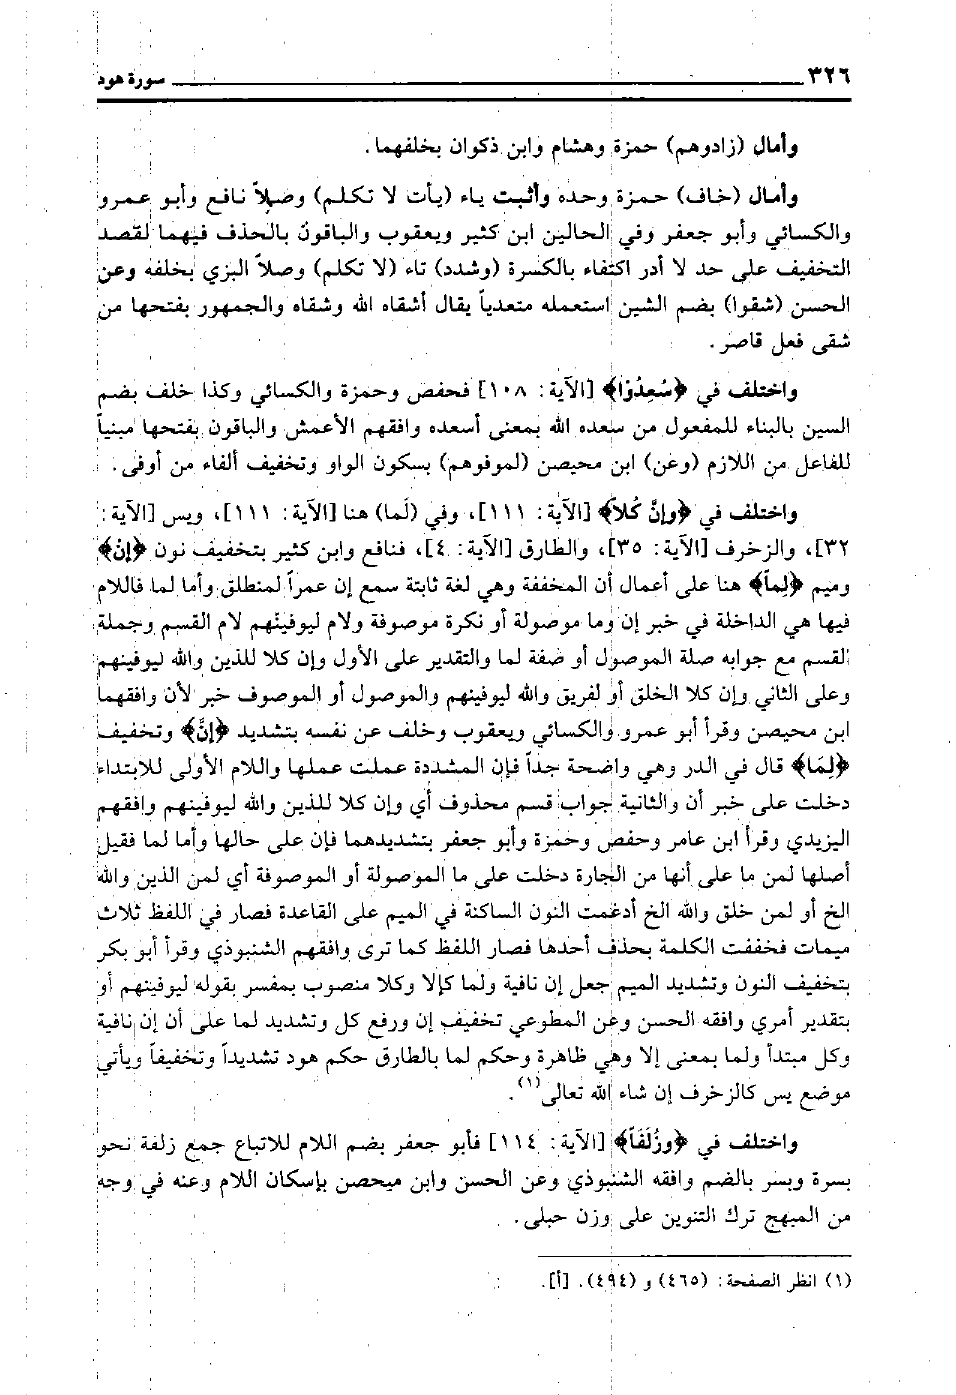 ٣٢٦ سورة هود
وأمال (زادوهم) حمزة وهشام وابن ذكوان بخلفهما.
وأمال (خاف) حمزة وحده وأثبت ياء (يأت لا تكلم) وصلاً نافع وأبو عمرو
والكسائي وأبو جعفر وفي الحالين ابن كثير ويعقوب والباقون بالحذف فيهما لقصد
التخفيف على حد لا أدر اكتفاء بالكسرة (وشدد) تاء (لا تكلم) وصلاً البزي بخلفه وعن
الحسن (شقوا) بضم الشين استعمله متعدياً يقال أشقاه الله وشقاه والجمهور بفتحها من
شقى فعل قاصر.
واختلف في ﴿سُعِدُوْا﴾ [الآية: ١٠٨] فحفص وحمزة والكسائي وكذا خلف بضم
السين بالبناء للمفعول من سعده الله بمعنى أسعده وافقهم الأعمش والباقون بفتحها مبنياً
للفاعل من اللازم (وعن) ابن محيصن (لموفوهم) بسكون الواو وتخفيف ألفاء من أوفى.
واختلف في ﴿وإنَّ كُلاً﴾ [الآية: ١١١]، وفي (لَما) هنا [الآية: ١١١]، ويس [الآية:
٣٢]، والزخرف [الآية: ٣٥]، والطارق [الآية: ٤]، فنافع وابن كثير بتخفيف نون ﴿إنْ﴾
وميم ﴿لِماً﴾ هنا على أعمال أن المخففة وهي لغة ثابتة سمع إن عمراً لمنطلق وأما لما فاللام
فيها هي الداخلة في خبر إن وما موصولة أو نكرة موصوفة ولام ليوفينهم لام القسم وجملة
القسم مع جوابه صلة الموصول أو صفة لما والتقدير على الأول وإن كلا للذين والله ليوفينهم
وعلى الثاني وإن كلا الخلق أو لفريق والله ليوفينهم والموصول أو الموصوف خبر لأن وافقهما
ابن محيصن وقرأ أبو عمرو والكسائي ويعقوب وخلف عن نفسه بتشديد ﴿إنَّ﴾ وتخفيف
﴿لِمَا﴾ قال في الدر وهي واضحة جداً فإن المشددة عملت عملها واللام الأولى للابتداء
دخلت على خبر أن والثانية جواب قسم محذوف أي وإن كلا للذين والله ليوفينهم وافقهم
اليزيدي وقرأ ابن عامر وحفص وحمزة وأبو جعفر بتشديدهما فإن على حالها وأما لما فقيل
أصلها لمن ما على أنها من الجارة دخلت على ما الموصولة أو الموصوفة أي لمن الذين والله
الخ أو لمن خلق والله الخ أدغمت النون الساكنة في الميم على القاعدة فصار في اللفظ ثلاث
ميمات فخففت الكلمة بحذف أحدها فصار اللفظ كما ترى وافقهم الشنبوذي وقرأ أبو بكر
بتخفيف النون وتشديد الميم جعل إن نافية ولما كإلا وكلا منصوب بمفسر بقوله ليوفينهم أو
بتقدير أمري وافقه الحسن وعن المطوعي تخفيف إن ورفع كل وتشديد لما على أن إن نافية
وكل مبتدأ ولما بمعنى إلا وهي ظاهرة وحكم لما بالطارق حكم هود تشديداً وتخفيفاً ويأتي
موضع يس كالزخرف إن شاء الله تعالى(١).
واختلف في ﴿وزُلَفَاً﴾ [الآية: ١١٤] فأبو جعفر بضم اللام للاتباع جمع زلفة نحو
بسرة وبسر بالضم وافقه الشنبوذي وعن الحسن وابن ميحصن بإسكان اللام وعنه في وجه
من المبهج ترك التنوين على وزن حبلى.
(١) انظر الصفحة: (٤٦٥) و (٤٩٤). [أ].